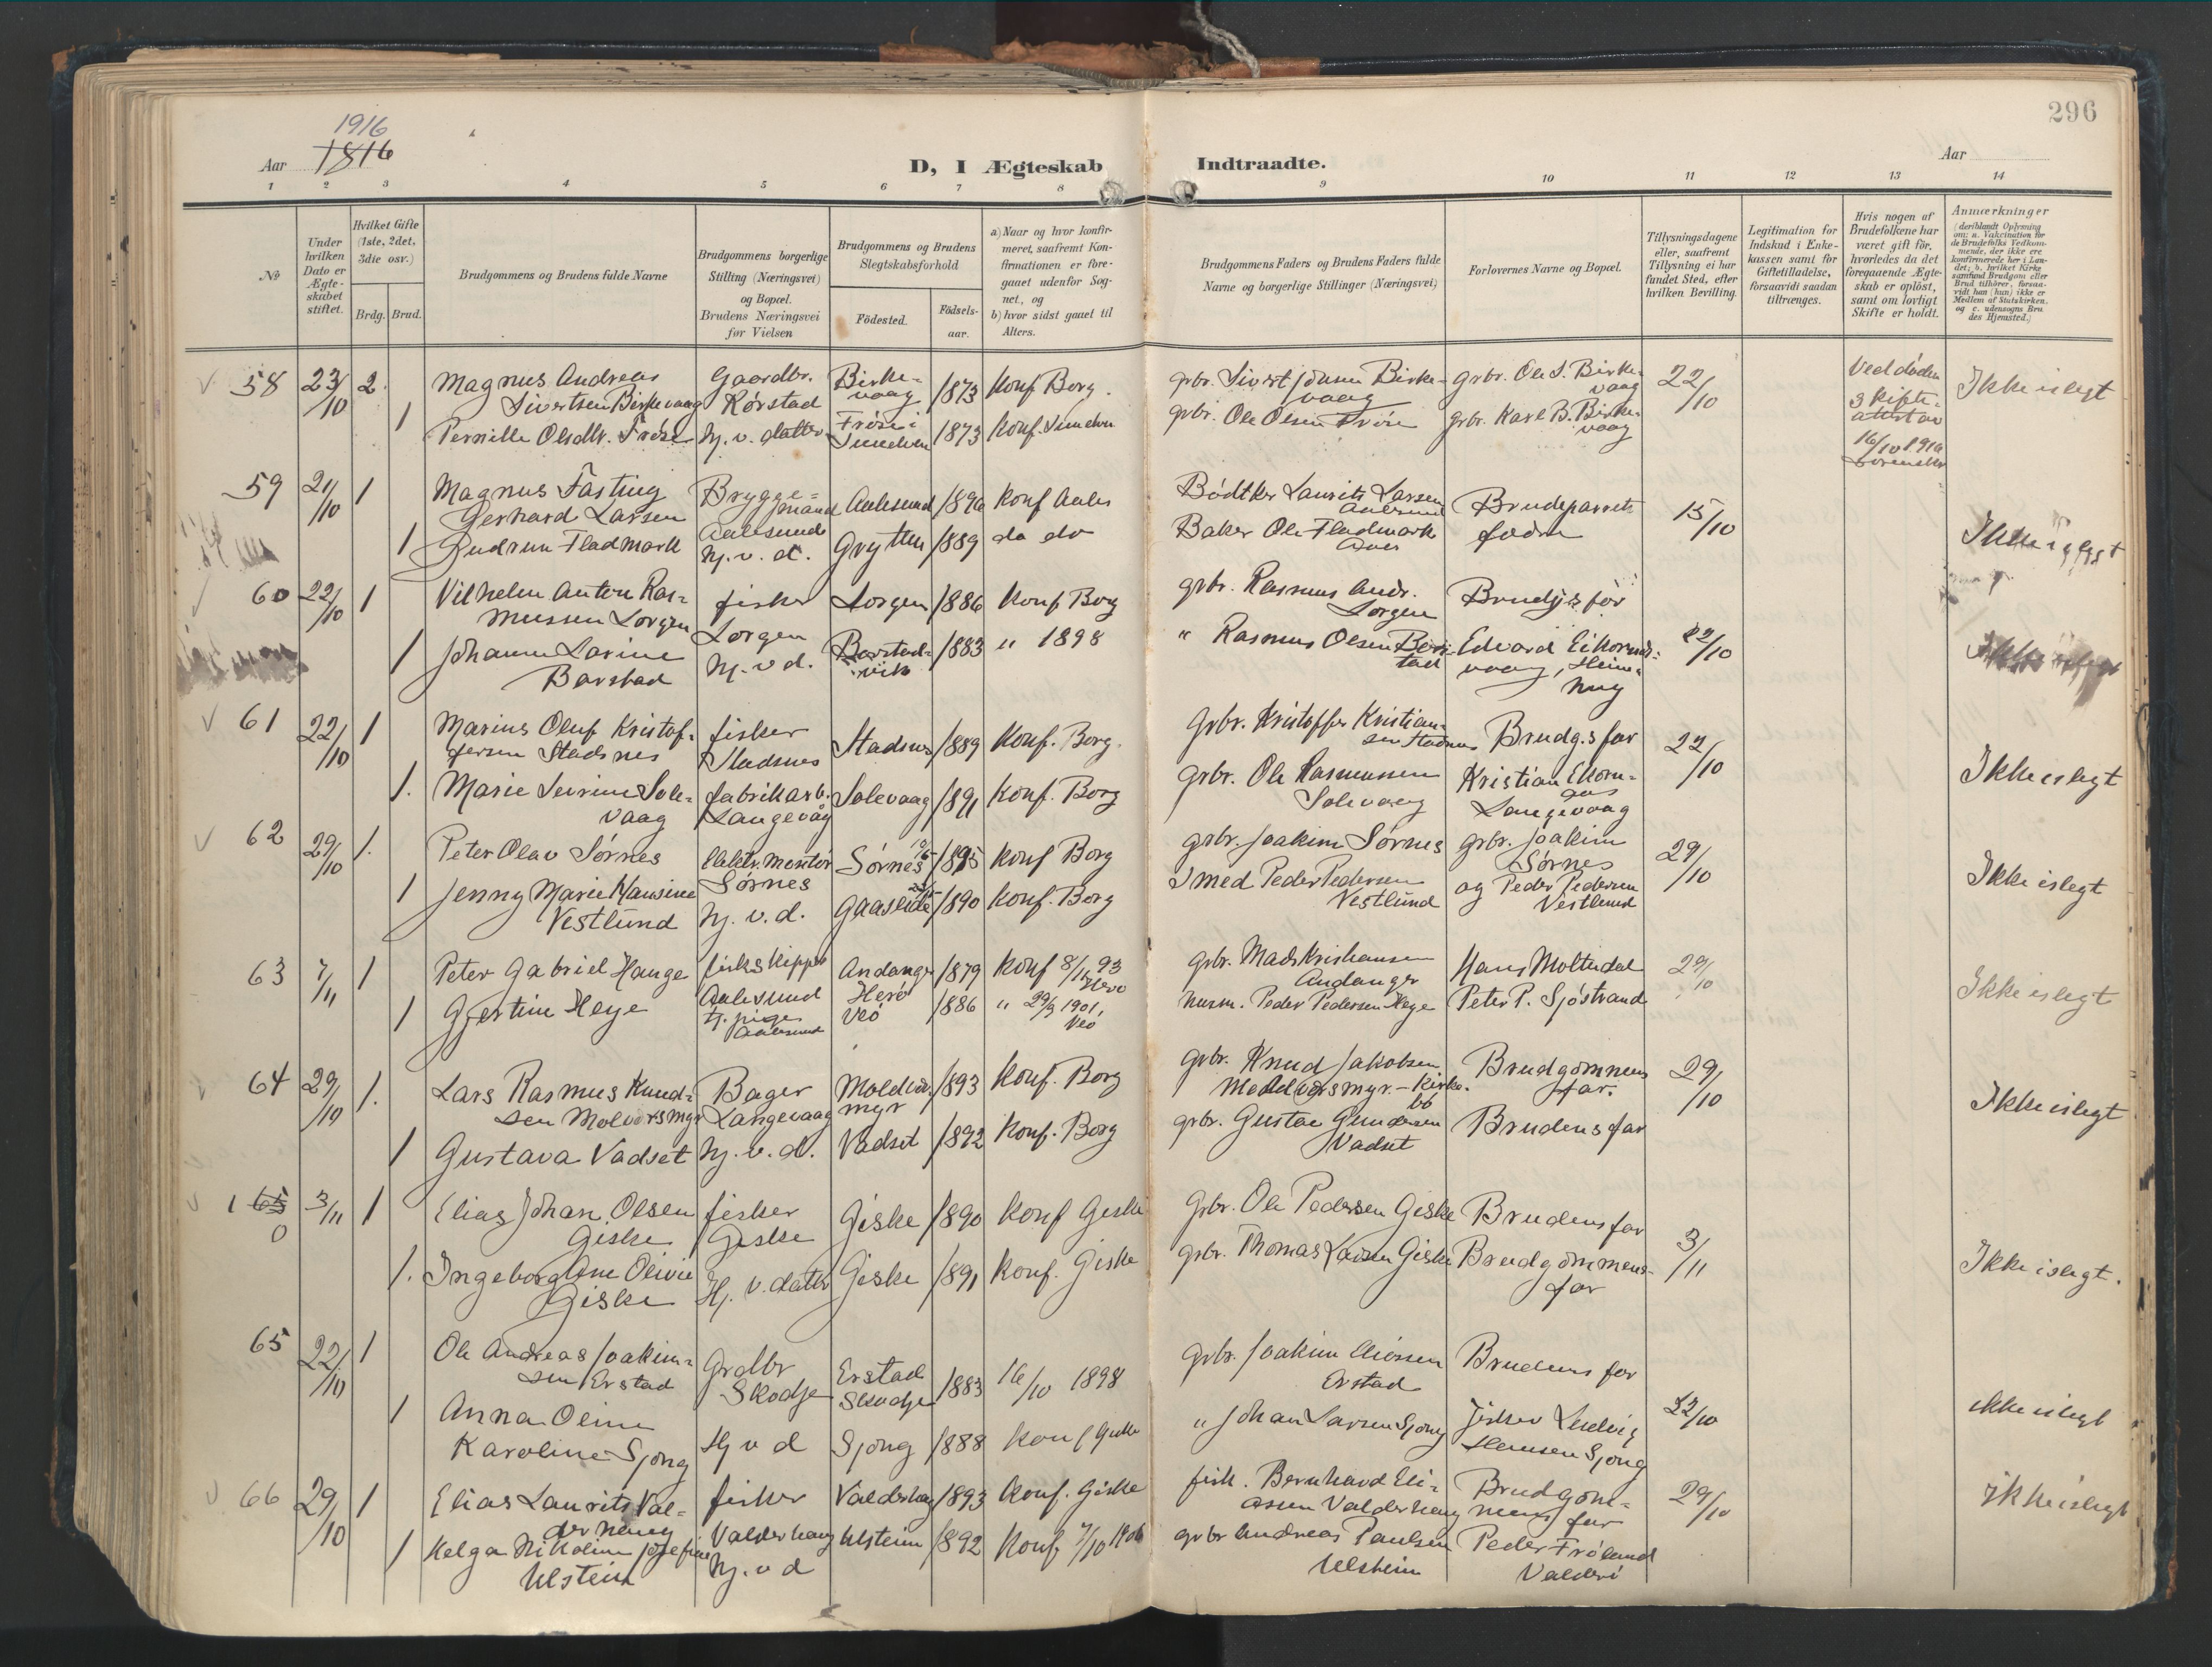 296
1916
Aar 1816
D, I Ægteskab Indtraadte.
Aar
1 2 3 4 5 6 7 8 9 10 11 12 13 14
No
Under hvilken Dato er Ægteskabet stiftet.
Hvilket Gifte (1ste, 2det, 3die osv.)
Brdg. Brud.
Brudgommens og Brudens fulde Navne
Brudgommens borgerlige Stilling (Næringsvei) og Bopæl. Brudens Næringsvei før Vielsen
Brudgommens og Brudens Slegtskabsforhold
Födested.
Födselsaar.
a) Naar og hvor konfirmeret, saafremt Konfirmationen er foregaaet udenfor Sognet, og
b) hvor sidst gaaet til Alters.
Brudgommens Faders og Brudens Faders fulde Navne og borgerlige Stillinger (Næringsvei)
Forlovernes Navne og Bopæl.
Tillysningsdagene eller, saafremt Tillysning ei har fundet Sted, efter hvilken Bevilling.
Legitimation for Indskud i Enkekassen samt for Giftetilladelse, forsaavidt saadan tiltrænges.
Hvis nogen af Brudefolkene har været gift för, hvorledes da det foregaaende Ægteskab er oplöst, samt om lovligt Skifte er holdt.
Anmærkninger
(deriblandt Oplysning om: a. Vakcination for de Brudefolks Vedkommende, der ikke ere konfirmerede her i Landet; b. hvilket Kirkesamfund Brudgom eller Brud tilhörer, forsaavidt han (hun) ikke er Medlem af Statskirken, og c. udensogns Brudes Hjemsted.)
58 23/10 2. Magnus Andreas Gaardbr. Birke- 1873 Konf Borg. grbr. Sivert Johnsen Birke- grbr. Ole S. Birke- 22/10 Ved døden Ikke i slegt
Sivertsen Birkevaag Rørstad vaag vaag vaag Skifte-
1 Pernille Olsdtr. Frøise hj. v. datter Frøise i 1873 Konf. Sunelven grbr. Ole Olsen Frøise grbr. Karl B. Birke- attest av
Sunelven vaag 16/10 1916
59 21/10 1 Magnus Fasting Brygge- Aalesund 1896 Konf Aales Bødtker Laurits Larsen Brudeparrets 15/10
Gerhard Larsen mand Aalesund fædre
1 Gudrun Fladmark Aalesund Grytten 1889 do do Baker Ole Fladmark Ikke i slegt
hj. v. d.
60 22/10 1 Vilhelm Anton Ras- fisker Sorgen 1886 Konf Borg grbr. Rasmus Andr. Brudg.s far
mussen Sorgen Sorgen Sorgen
1 Johanne Larine hj. v. d. Barstad- 1883 " 1898 " Rasmus Olsen Bar- Edvard Eikorms- 22/10
Barstad vik stad vaag, Heim-
hug
61 22/10 1 Marius Oluf Kristof- fisker Stadsnes 1889 Konf. Borg. Grbr. Kristoffer Kristian- Brudg.s far 22/10
fersen Stadsnes Stadsnes sen Stadsnes
1. Marie Severine Sole- fabrikarb. Solevaag 1891 Konf. Borg grbr. Ole Rasmussen Kristian Ekorn- Ikke i slegt
vaag Langevåg Solevaag aas
Langevaag
62 29/10 1. Peter Olav Sørnes elektr. montør Sørnes 1895 Konf Borg grbr. Joakim Sørnes grbr. Joakim 29/10
Sørnes Sørnes
1 Jenny Marie Hansine hj. v. d. Gaaseide 1890 Konf. Borg Smed Peder Pedersen og Peder Pedersen Ikke i slegt
Vestlund Vestlund Vestlund
63 7/11 1 Peter Gabriel Hauge fiskeskipper Andanger 1879 Konf 8/11 93 grbr. Mads Kristiansen Hans Moltudal 29/10
Aalesund Herø Herø Andanger
1 Gjertine Heye tj. pige Veö 1886 " 29/9 1901, husm. Peder Pedersen Heye Peter P. Sjöstrand Ikke i slegt
Aalesund Veö
64 29/10 1. Lars Rasmus Knud- Bager Moldvær- 1893 Konf. Borg grbr. Knud Jakobsen Brudgommens 29/10
sen Molværsmyr Langevaag myr Moldværsmyr. - Kirke- far.
bö
1 Gustava Vadset hj. v. d. Vadset 1892 Konf. Borg grbr. Gustav Gundersen Brudens far Ikke i slegt
Vadset
1 65 3/11 1 Elias Johan Olsen fisker Giske 1890 Konf Giske Grbr. Ole Pedersen Giske Brudens far
0 Giske Giske
1. Ingeborg Ane Olivie Hj. v. datter Giske 1891 Konf. Giske grbr. Thomas Larsen Giske Brudgommens 3/11 Ikke i slegt.
Giske far
65 22/10 1 Ole Andreas Joakim- Grdbr Erstad 1883 16/10 1898 grbr. Joakim Eliassen Brudens far
sen Erstad Skodje Skodje Erstad
1 Anna Oline Hj v d Sjong 1888 Konf Giske " Johan Larsen Sjong fisker Ludvig 22/10 ikke i slegt
Karoline Sjong Hansen Sjong
66 29/10 1 Elias Laurits Val- fisker Valderhaug 1893 Konf. Giske fisk. Bernhard Eli- Brudgom- 29/10 ikke i slegt
derhaug Valderhaug assen Valderhaug mens far
1 Helga Nikoline Josefine hj. v d Ulstein 1892 Konf 7/10 1906 grbr Andreas Paulsen Peder Frøland
Ulstein Ulstein Valderö